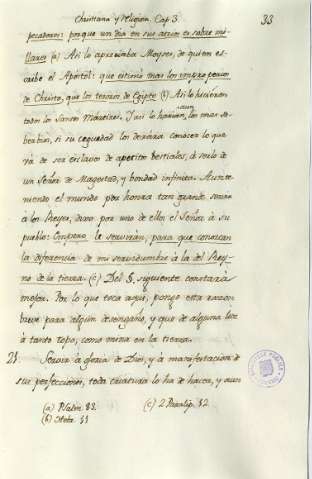 Christiana y religiosa. Cap. 3. 33
pecadores: porque un dia en sus atrios es sobre mi-
llares (a) Asi lo apreciaba Moyses, de quien es-
cribe el Apóstol: que estimó mas los improperios
de Christo, que los tesoros de Egipto (b) Asi lo hicieron
todos los Santos Martires. Y asi lo harían aun los mas so-
berbios, si su ceguedad los dexára conocer lo que
vá de ser esclavos de apetitos bestiales, à serlo de
un Señor de Magestad, y bondad infinita. Aun te-
niendo el mundo por honra tan grande servir
à los Reyes, dixo por uno de ellos el Señor à su
pueblo: Empero le servirán, para que conozcan
la diferencia de mi servidumbre à la del Rey-
no de la tierra. (c) Del §. siguiente constará
mejor. Por lo que toca aqui, pongo esta razon
breve para algun desengaño, y que de alguna luz
à tanto topo, como mina en la tierra.
21. Servir à gloria de Dios, y à manifestacion de
sus perfecciones, toda criatura lo ha de hacer, y aun
(a) Psalm. 83. (c) 2 Paralip. 12.
(b) Hebr. 11